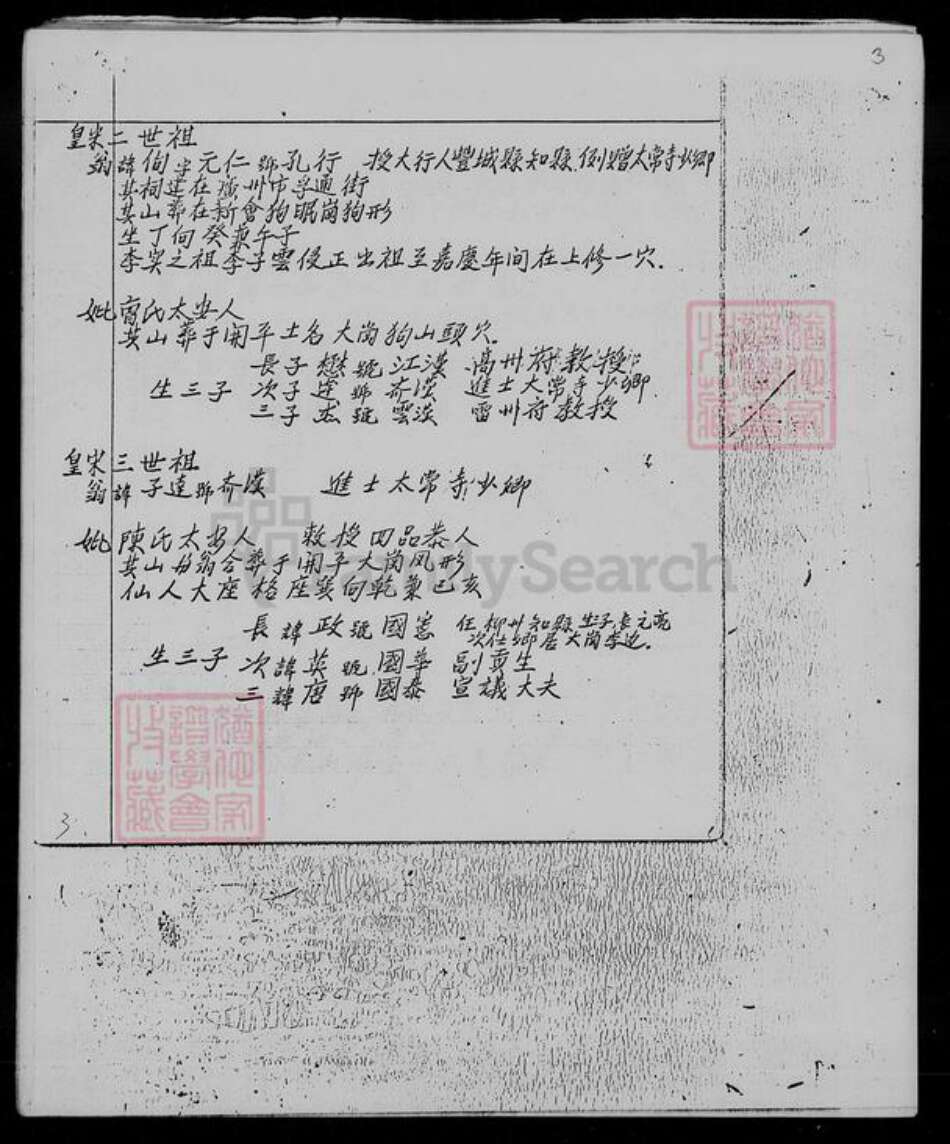 3
皇宋二世祖
翁諱佝字元仁號孔行 授大行人豐城縣知縣.例贈太常寺少卿
其祠建在廣州市學通街
其山葬在新會狗眠崗狗形
坐丁向癸兼午子
李実之祖李子雲侵正出祖至嘉慶年间在上修一穴.
妣 氏太安人
其山葬于開平土名大崗狗山頭穴.
長子懋號江漢 高州府教授
生三子 次子達號齐漢 進士太常寺少卿
三子杰號雲漢 雷州府教授
皇宋三世祖
翁諱子達號齐漢 進士太常寺少卿
妣陳氏太安人 敕授四品恭人
其山与翁合葬于開平大崗凤形
仙人大座格座巽向乾兼巳亥
長諱政號國憲 任柳州知縣生子長元亮
次仕鄉居大崗李边.
生三子 次諱英號國華 副貢生
三諱唐號國泰 宣議大夫
3.
FamilySearch
猶他家譜學會特藏
猶他家譜學會特藏